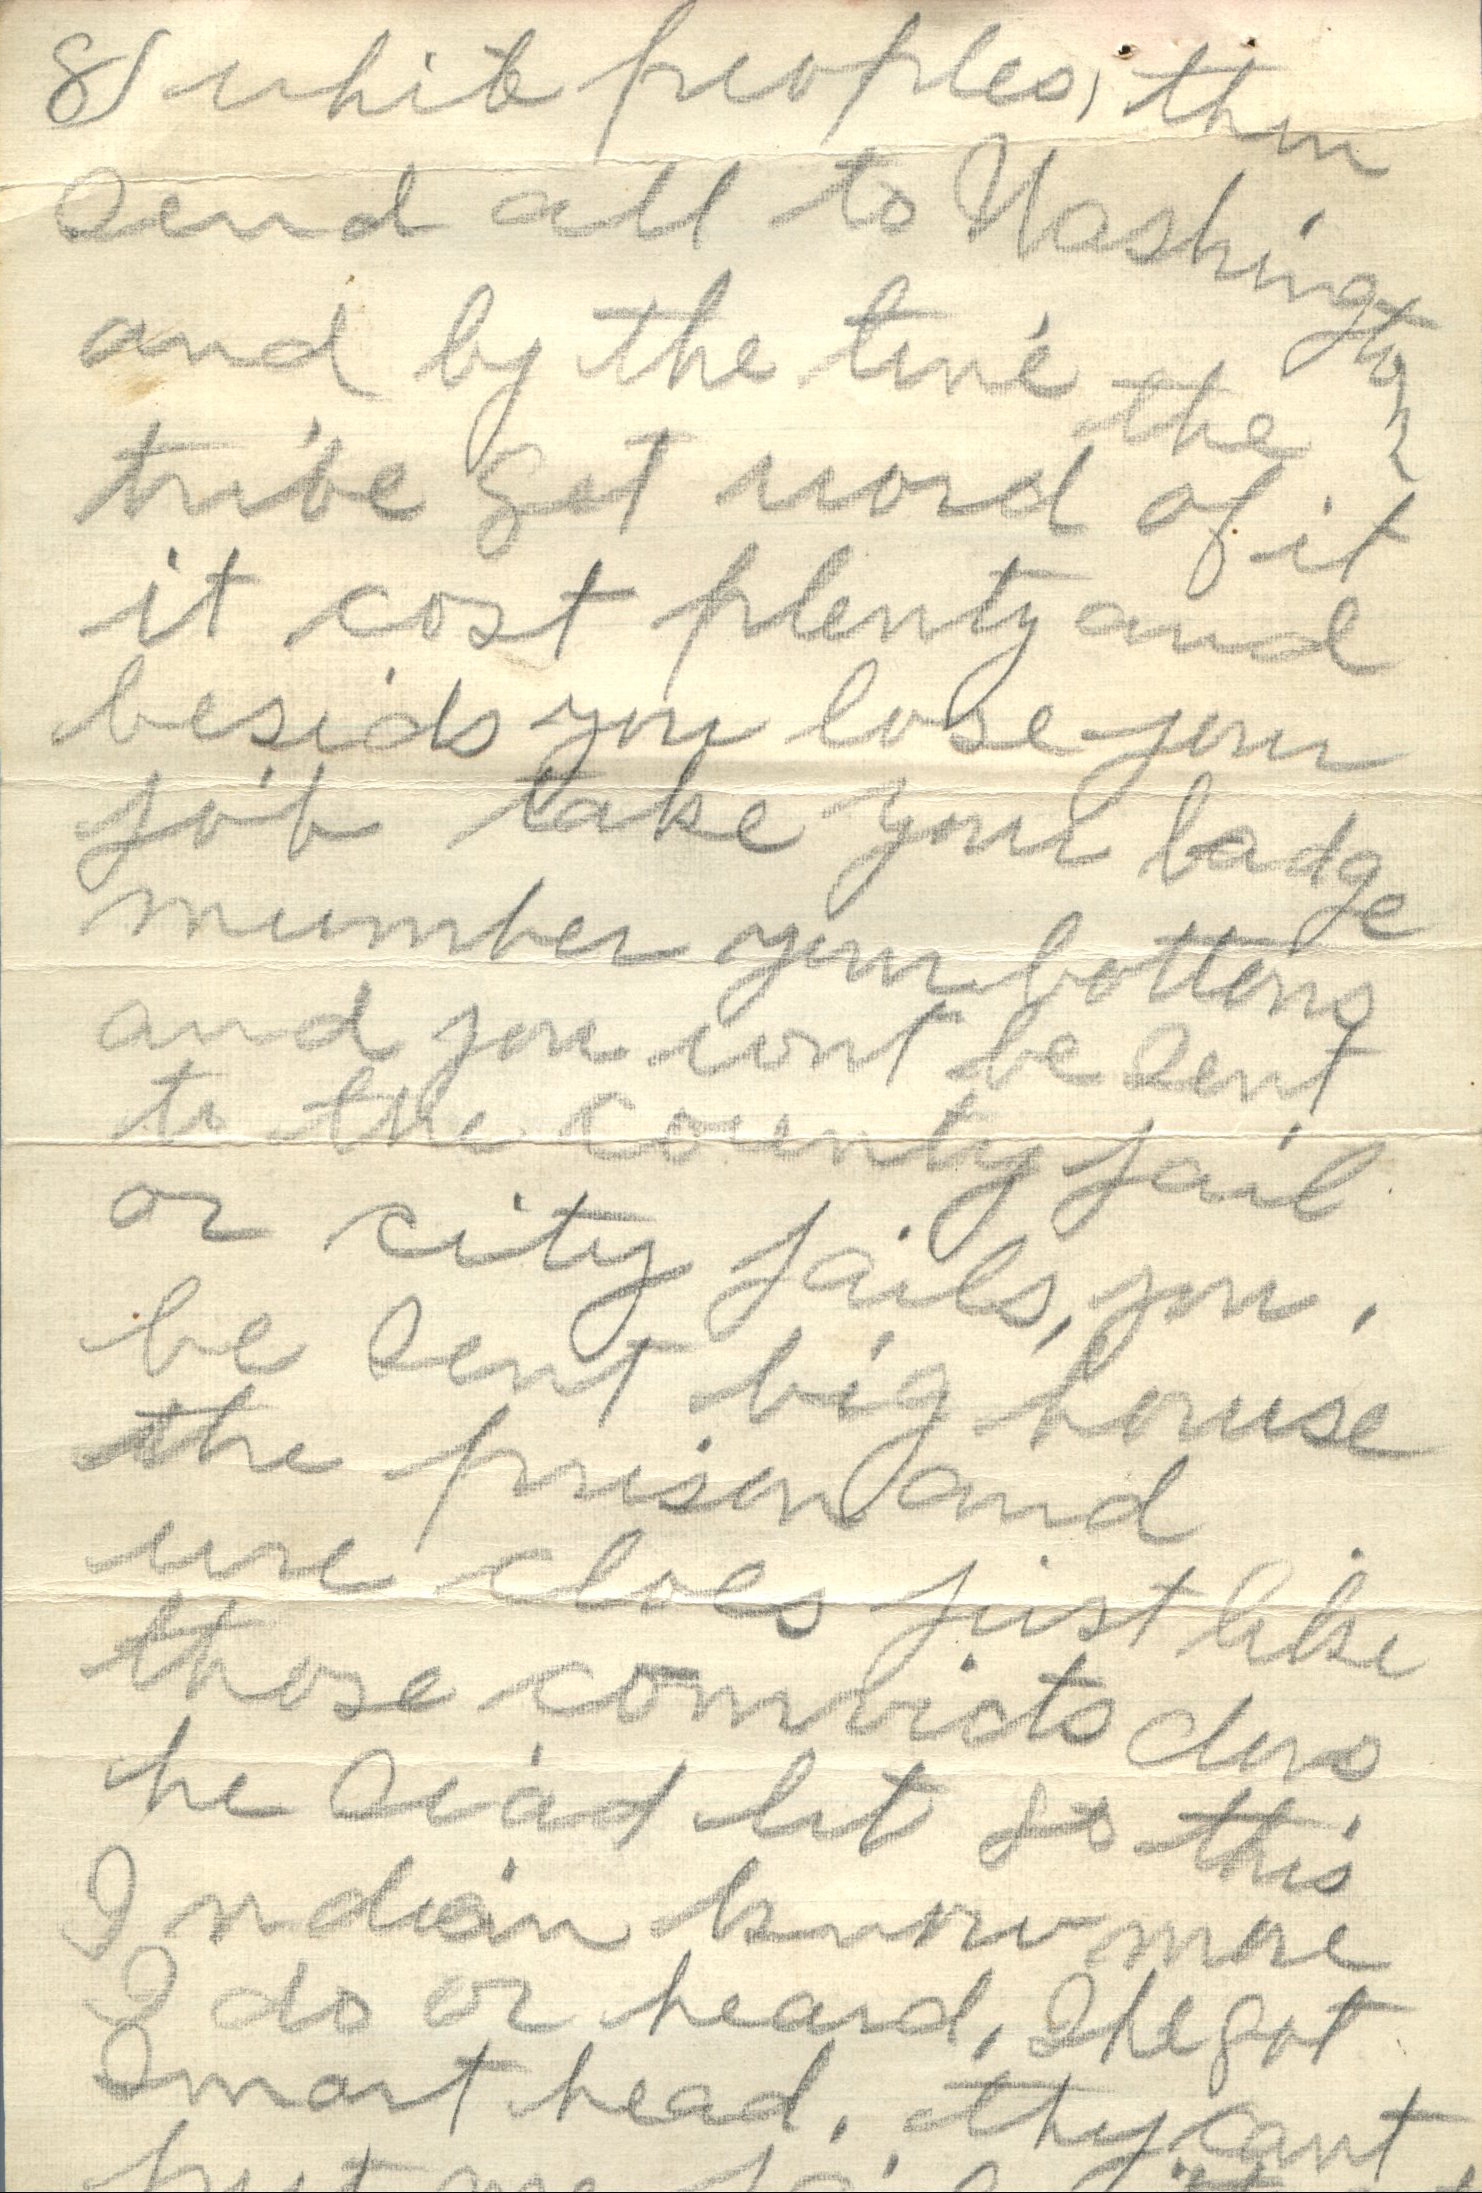 8) white peoples, then
send all to Washington
and by the time the
tribe get word of it
it cost plenty and
besids you lose your
job take your badge
mumber your bottons
and you wont be sent
to the county jail
or city jails, you.
be sent big house
the prison and
ure cloes just like
those convicts dors
he siad lit so this
Indian know more
I do or heard, She got
Smart head. they cant
put me